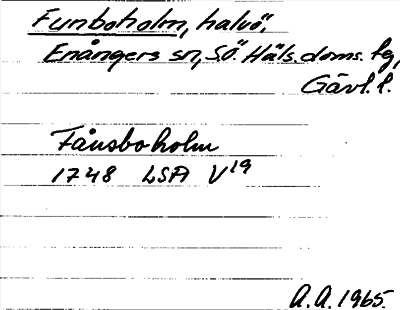 Fynboholm, halvö,
Enångers sn, S.Ö. Häls. doms. tg,
Gävl. l.
Fånsboholm
1748 LSA V19
A.A. 1965.